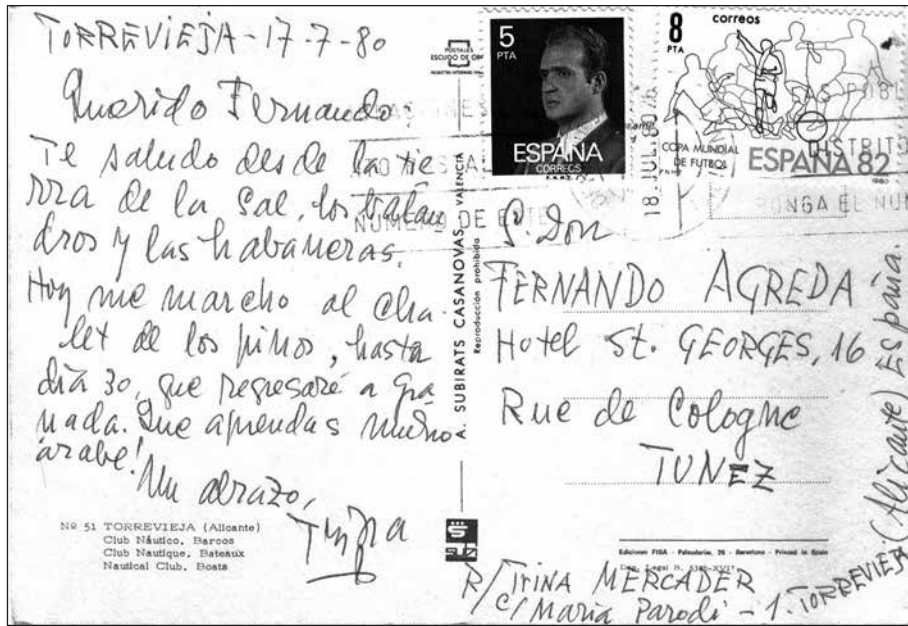 TORREVIEJA - 17-7-80
Querido Fernando:
Te saludo desde la tie
rra de la Sal, los balan
dros y las habaneras.
Hoy me marcho al cha-
let de los pinos, hasta
día 30, que regresaré a Gra
nada. Que aprendas mucho
árabe!
Un abrazo,
Trina
Nº 51 TORREVIEJA (Alicante)
Club Náutico, Barcos
Club Nautique, Bateaux
Nautical Club, Boats
POSTALES
ESCUDO DE ORO
A. SUBIRATS CASANOVAS, VALENCIA
Reproducción prohibida
5
PTA
ESPAÑA
CORREOS
8
PTA
correos
COPA MUNDIAL
DE FUTBOL
ESPAÑA 82
1980
18 JUL. 80
DISTRITO
PONGA EL NUM
NUMERO DE
S. Don
FERNANDO AGREDA
Hotel St. GEORGES, 16
Rue de Cologne
TUNEZ
Ediciones FISA - Palaudarias, 26 - Barcelona - Printed in Spain
Dep. Legal B.
R/ TRINA MERCADER
c/ María Parodi - 1. TORREVIEJA (Alicante) España.